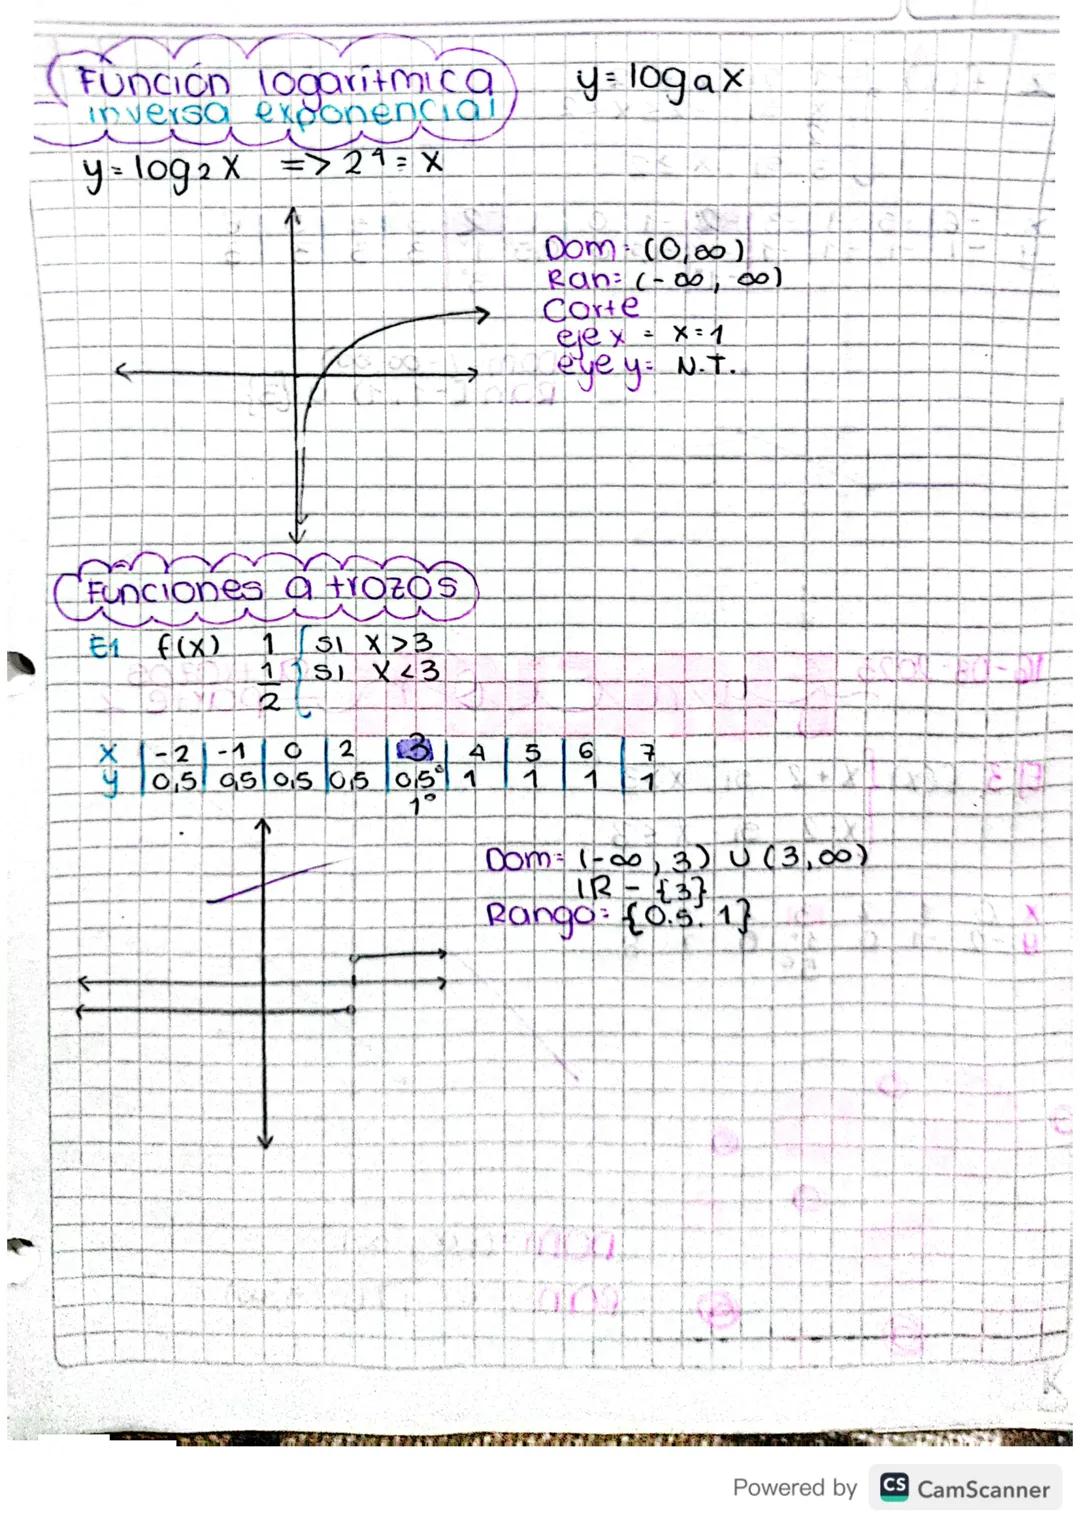 Función logarítmica
inversa exponencial
y = logax
y = log2x => 2^y = x
Dom = (0,∞)
Ran = (-∞, ∞)
Corte
eje x = x=1
eye y = N.T.
Funciones a trozos
E1 f(x) 1 { si x > 3
1/2 { si x < 3
x | -2 | -1 | 0 | 2 | 3 | 4 | 5 | 6 | 7
y | 0,5 | 0,5 | 0,5 | 0,5 | 0,5° | 1 | 1 | 1 | 1
1°
Dom = (-∞, 3) U (3,∞)
IR - {3}
Rango = {0.5. 1}
Powered by CS CamScanner